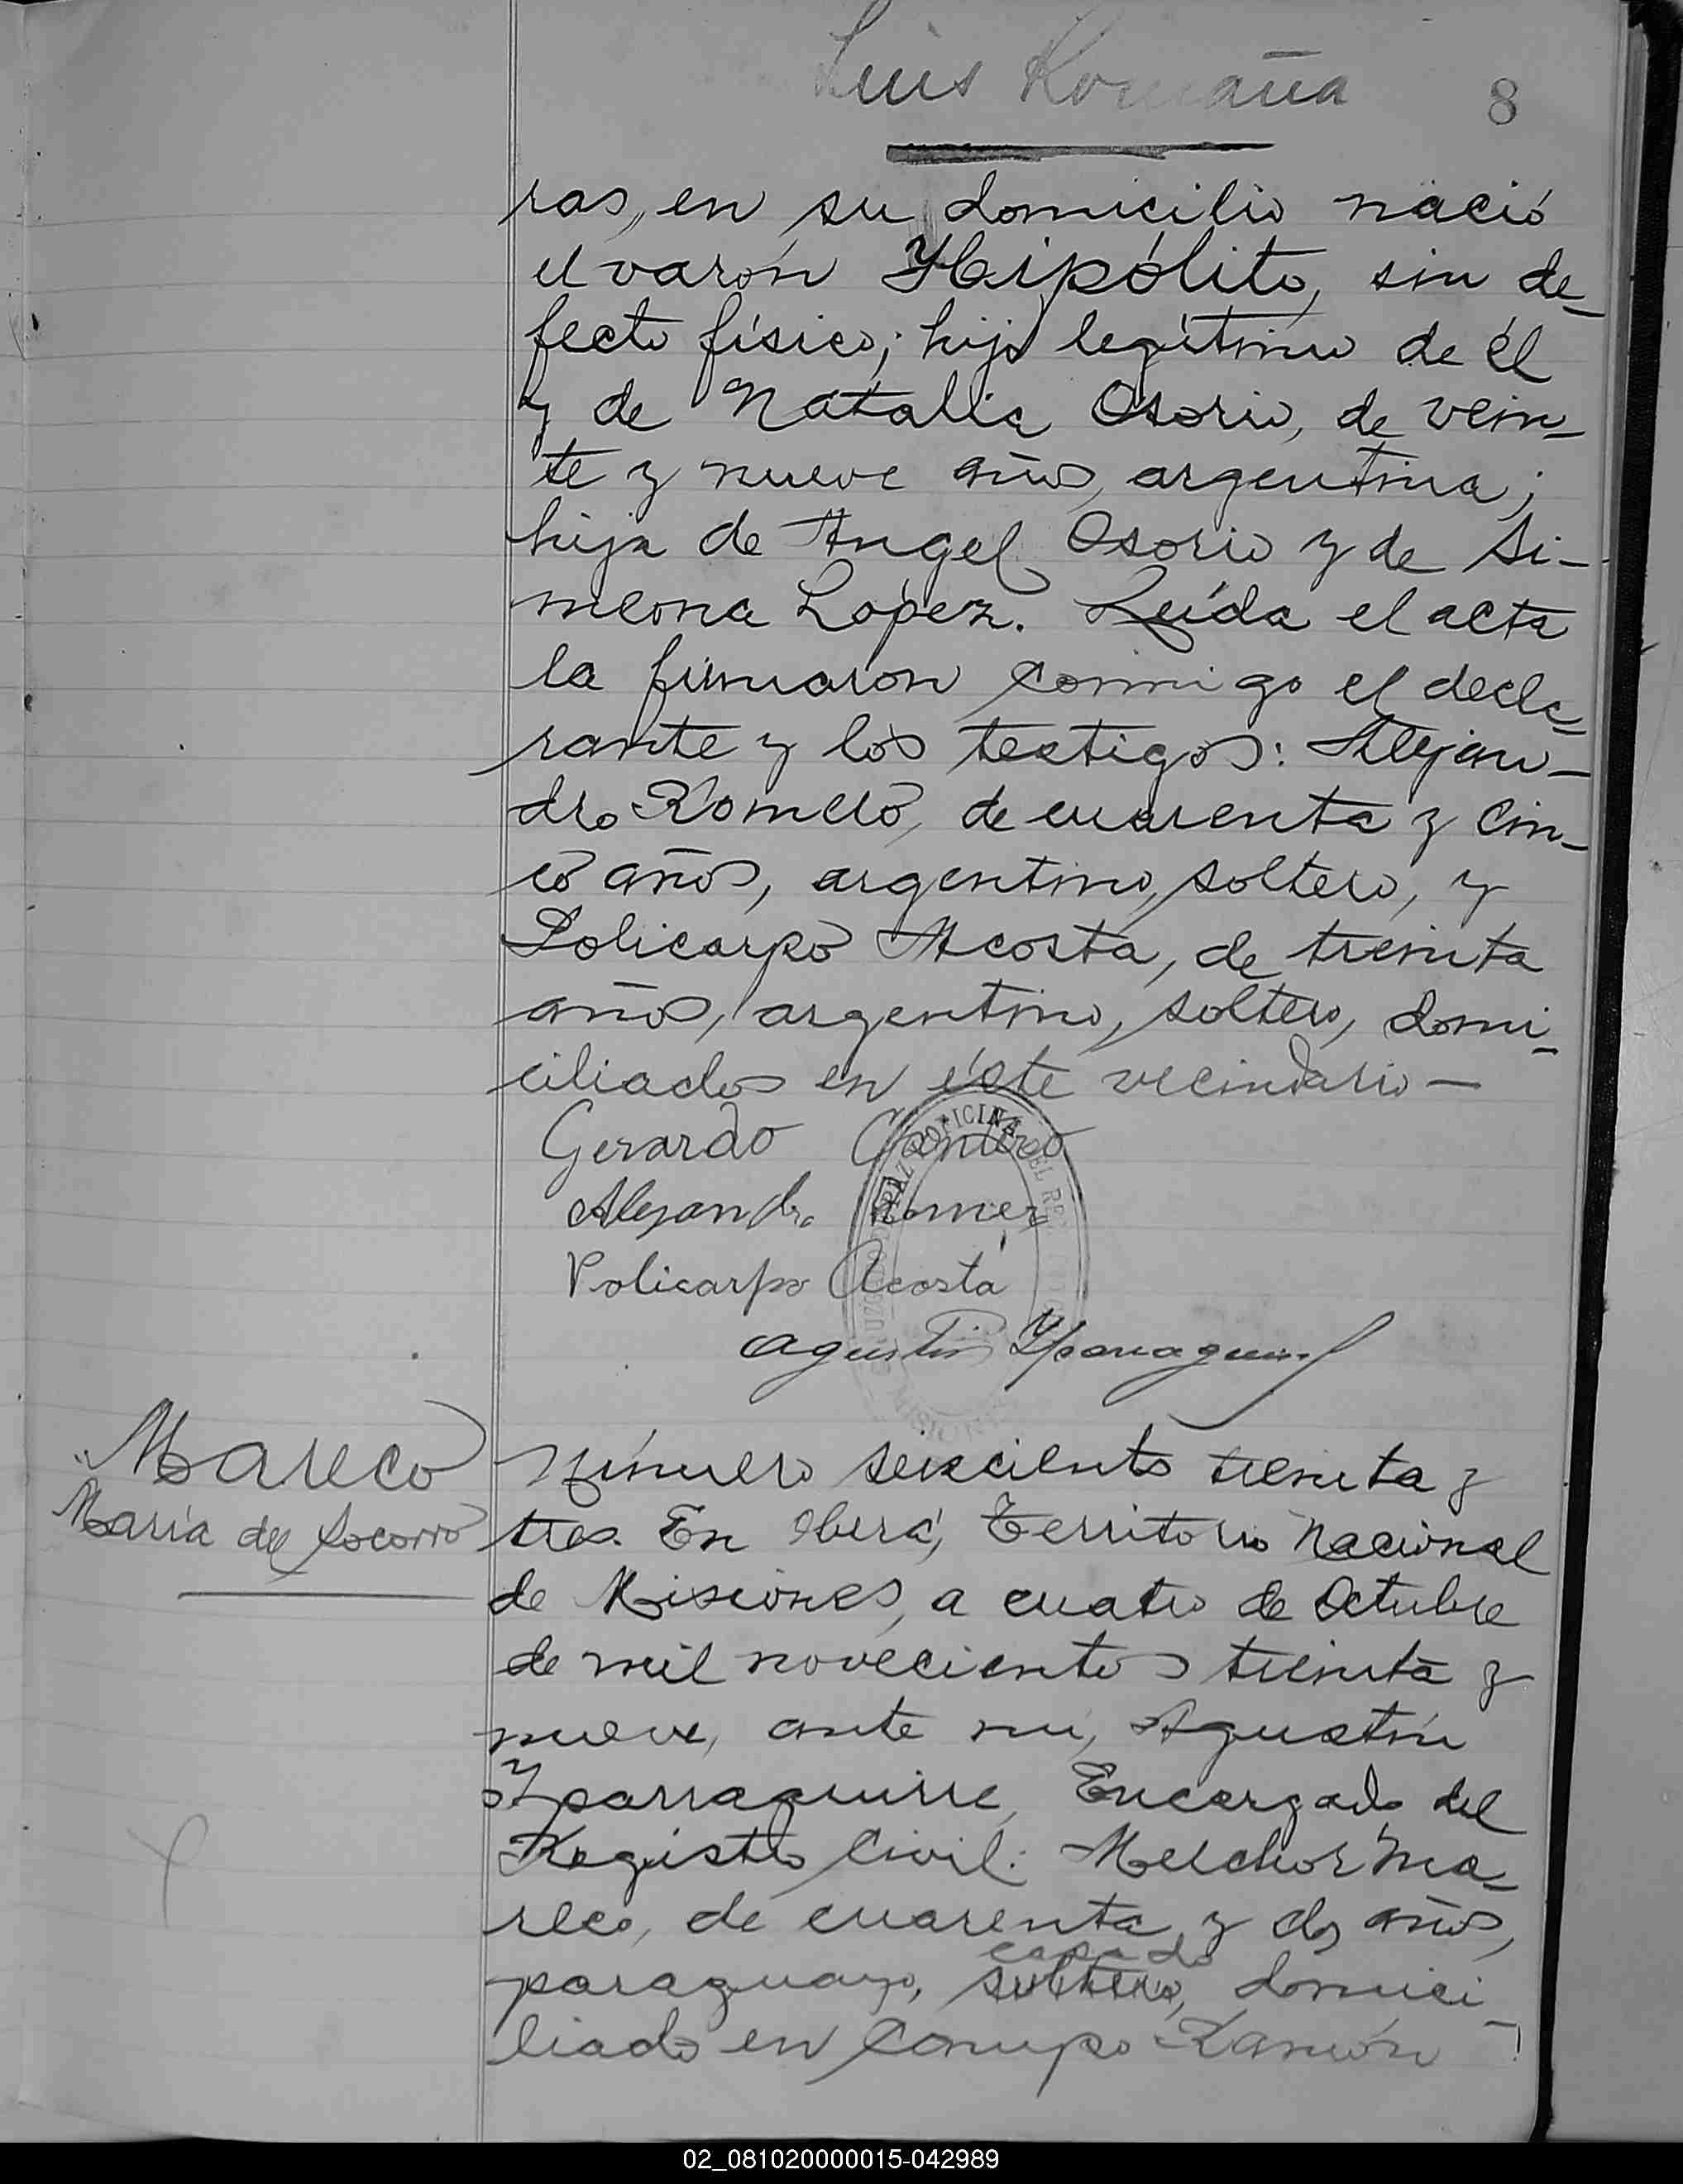 Luis Romaña
8
ras, en su domicilio nació
el varón Hipólito, sin de-
fecto físico; hijo legítimo de él
y de Natalia Osorio, de vein-
te y nueve años, argentina;
hija de Angel Osorio y de Si-
meona López. Leída el acta
la firmaron conmigo el decla-
rante y los testigos: Alejan-
dro Romero, de cuarenta y cin-
co años, argentino, soltero, y
Policarpo Acosta, de treinta
años, argentino, soltero, domi-
ciliados en éste vecindario —
Gerardo
Alejandro Romero
Policarpo Acosta
Agustin Yparraguirre
OFICINA DEL
MISIONES
Mareco
María del Socorro
Número seiscientos treinta y
tres. En Oberá, Territorio Nacional
de Misiones, a cuatro de Octubre
de mil novecientos treinta y
nueve, ante mí, Agustín
Yparraguirre, Encargado del
Registro Civil: Melchor Ma-
reco, de cuarenta y dos años,
casado
paraguayo, soltero, domici-
liado en Campo Ramón
02_081020000015-042989